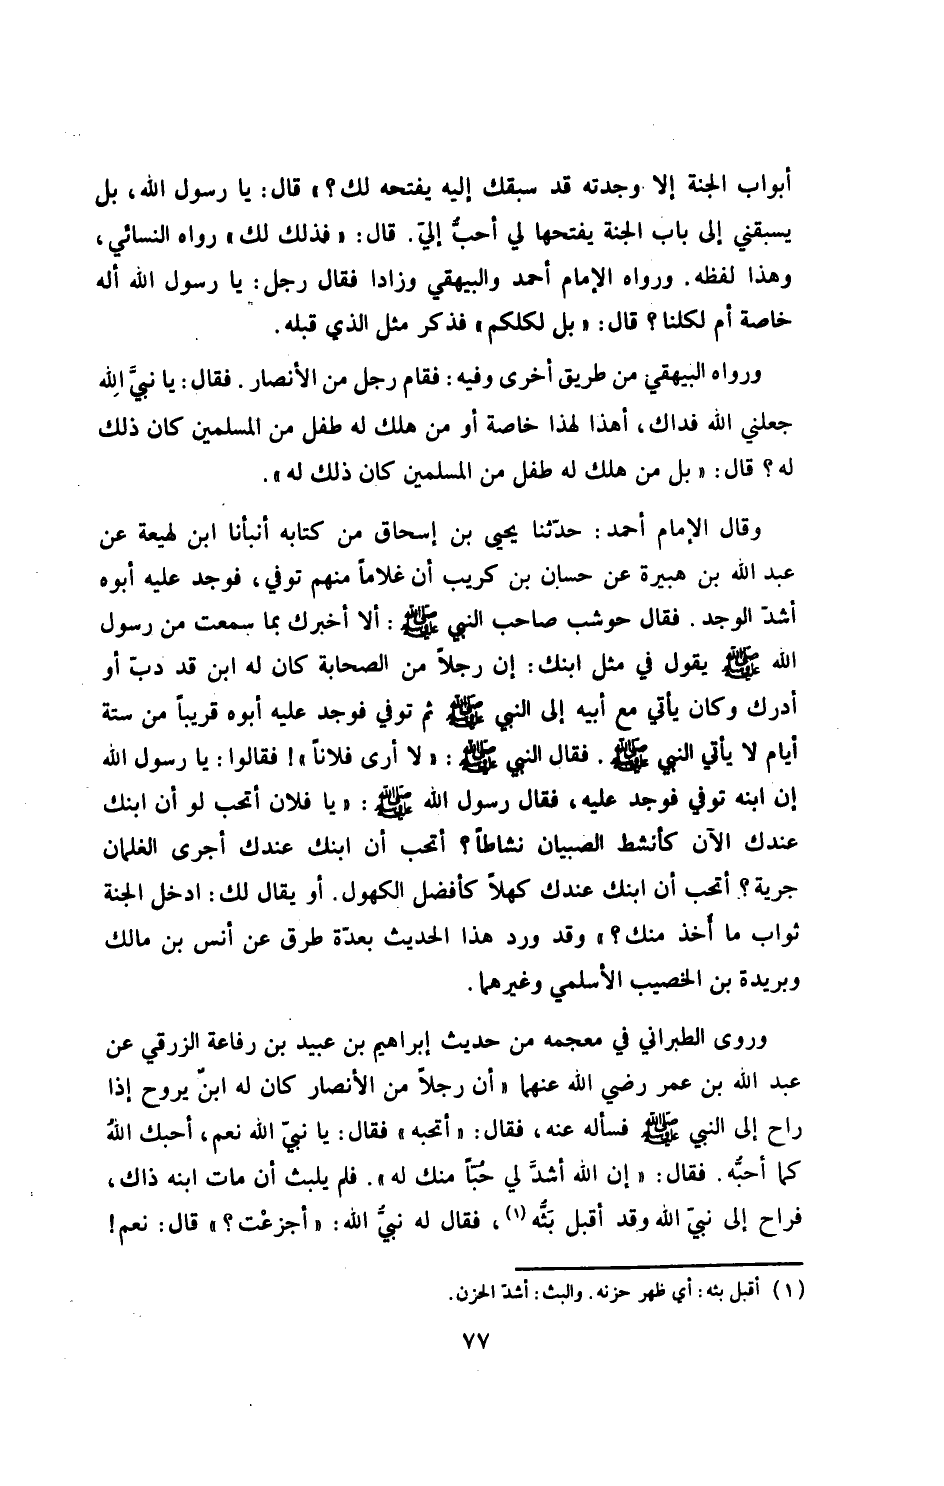 أبواب الجنة إلا وجدته قد سبقك إليه يفتحه لك؟» قال: يا رسول الله، بل
يسبقني إلى باب الجنة يفتحها لي أحبُّ إليّ. قال: «فذلك لك» رواه النسائي،
وهذا لفظه. ورواه الإمام أحمد والبيهقي وزادا فقال رجل: يا رسول الله أله
خاصة أم لكلنا؟ قال: «بل لكلكم» فذكر مثل الذي قبله.
ورواه البيهقي من طريق أخرى وفيه: فقام رجل من الأنصار. فقال: يا نبيَّ اللهِ
جعلني الله فداك، أهذا لهذا خاصة أو من هلك له طفل من المسلمين كان ذلك
له؟ قال: «بل من هلك له طفل من المسلمين كان ذلك له».
وقال الإمام أحمد: حدّثنا يحيى بن إسحاق من كتابه أنبأنا ابن لهيعة عن
عبد الله بن هبيرة عن حسان بن كريب أن غلاماً منهم توفي، فوجد عليه أبوه
أشدّ الوجد. فقال حوشب صاحب النبي ﷺ: ألا أخبرك بما سمعت من رسول
الله ﷺ يقول في مثل ابنك: إن رجلاً من الصحابة كان له ابن قد دبّ أو
أدرك وكان يأتي مع أبيه إلى النبي ﷺ ثم توفي فوجد عليه أبوه قريباً من ستة
أيام لا يأتي النبي ﷺ. فقال النبي ﷺ: «لا أرى فلاناً»! فقالوا: يا رسول الله
إن ابنه توفي فوجد عليه، فقال رسول الله ﷺ: «يا فلان أتحب لو أن ابنك
عندك الآن كأنشط الصبيان نشاطاً؟ أتحب أن ابنك عندك أجرى الغلمان
جرية؟ أتحب أن ابنك عندك كهلاً كأفضل الكهول. أو يقال لك: ادخل الجنة
ثواب ما أُخذ منك؟» وقد ورد هذا الحديث بعدّة طرق عن أنس بن مالك
وبريدة بن الخصيب الأسلمي وغيرهما.
وروى الطبراني في معجمه من حديث إبراهيم بن عبيد بن رفاعة الزرقي عن
عبد الله بن عمر رضي الله عنهما «أن رجلاً من الأنصار كان له ابنٌ يروح إذا
راح إلى النبي ﷺ فسأله عنه، فقال: «أتحبه» فقال: يا نبيّ الله نعم، أحبك اللهُ
كما أحبُّه. فقال: «إن الله أشدَّ لي حُبّاً منك له». فلم يلبث أن مات ابنه ذاك،
فراح إلى نبيّ الله وقد أقبل بَثُّه (١)، فقال له نبيُّ الله: «أجزعْت؟» قال: نعم!
(١) أقبل بثه: أي ظهر حزنه. والبث: أشدّ الحزن.
٧٧